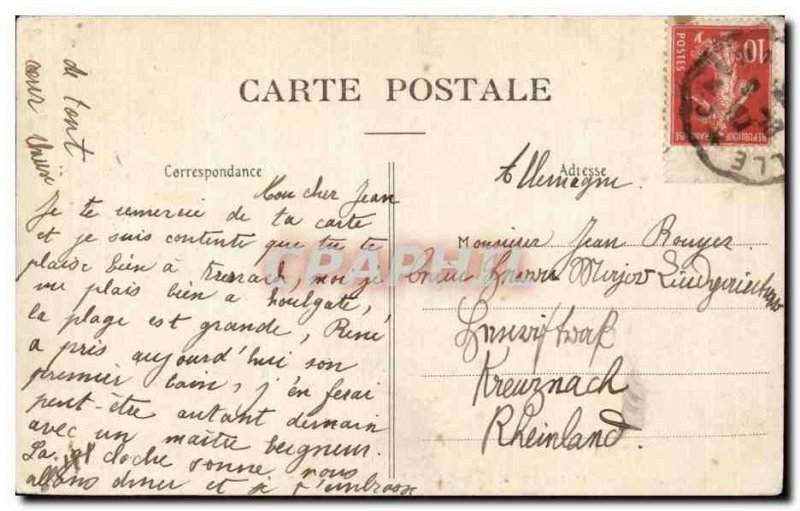 CARTE POSTALE
Correspondance
Mon cher Jean
Je te remercie de ta carte
et je suis contente que tu te
plaise bien à moi je
me plais bien a houlgate,
la plage est grande, René
a pris aujourd'hui son
premier bain, j'en ferai
peut-être autant demain
avec un maître beigneur.
La cloche sonne nous
allons diner et je t'embrasse
de tout
cœur
Allemagne
Adresse
Monsieur Jean Rouyer
Kreuznach
Rheinland.
POSTES
10
REPUBLIQUE FRANÇAISE
CPAPHIL